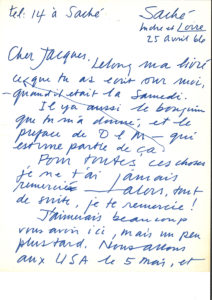 tel: 14 à Saché
Saché
Indre et Loire
25 avril 60
Cher Jacques,
Lelong m'a livré
ce que tu as écrit sur moi,
quand il était là Samedi.
Il y a aussi le bouquin
que tu m'a donné, et le
préface de D L M — qui
est une partie de ça.
Pour toutes ces choses
je ne t'ai jamais
remercié — alors, tout
de suite, je te remercie!
J'aimerais beaucoup
vous avoir ici, mais un peu
plus tard. Nous allons
aux USA le 5 Mai, et